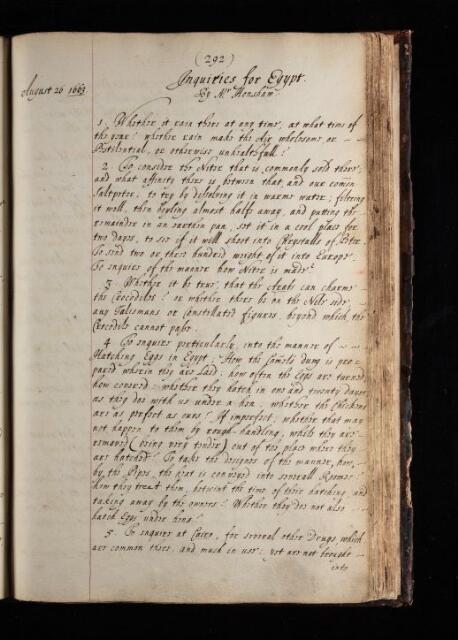 (292)
Inquiries for Egypt.
By Mr Henshaw
August 26 1663
1. Whether it rain there at any time, at what time of
the year? whether rain make the Air wholesome, or
Pestilential, or otherwise unhealthfull?
2. To consider the Niter that is commonly sold there,
and what affinity there is between that and our comon
saltpeter: to try by dissolving it in warme water; filtring
it well, then boyling almost halfe away, and putting the
remainder in an earthen pan, set it in a cool place for
two dayes, to see if it will shoot into Chrystalls of Niter.
To send two or three hundred weight of it into Europe.
To enquire of the manner how Niter is made?
3. Whether it be true, that the Arabs can charme
the Crocodiles? or whither there be on the Nile side
any Talismans or Constellated figures, beyond which the
Crocodile cannot passe.
4. To enquire perticularly into the manner of
Hatching Eggs in Egypt; How the Camels dung is pre-
pared wherein they are Laid: how often the Eggs are turned,
how covered: whether they hatch in one and twenty dayes
as they doe with us under a hen: whether the Chickens
are as perfect as ours? If imperfect: whether that may
not happen to them by rough-handling, whilst they are
removed (being very tender) out of the place where they
are hatched? To take the designes of the manner, how,
by the Pipes, the heat is conveyed into severall Roomes:
how they treat them, betwixt the time of their hatching, and
taking away by the owners? Whether they doe not also
hatch Eggs under hens?
5. To enquire at Cairo, for several other Drugs, which
are common there, and much in use; yet are not brought
into